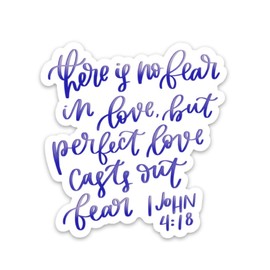 there is no fear
in love, but
perfect love
casts out
fear 1 JOHN
4:18